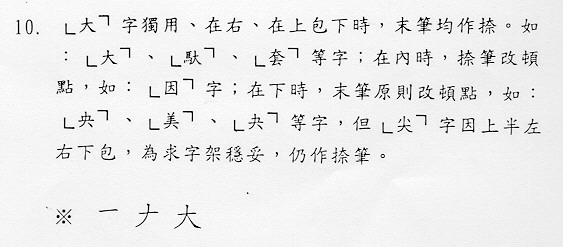 10. 「大」字獨用、在右、在上包下時，末筆均作捺。如
：「大」、「馱」、「套」等字；在內時，捺筆改頓
點，如：「因」字；在下時，末筆原則改頓點，如：
「央」、「美」、「夬」等字，但「尖」字因上半左
右下包，為求字架穩妥，仍作捺筆。
※ 一 ナ 大